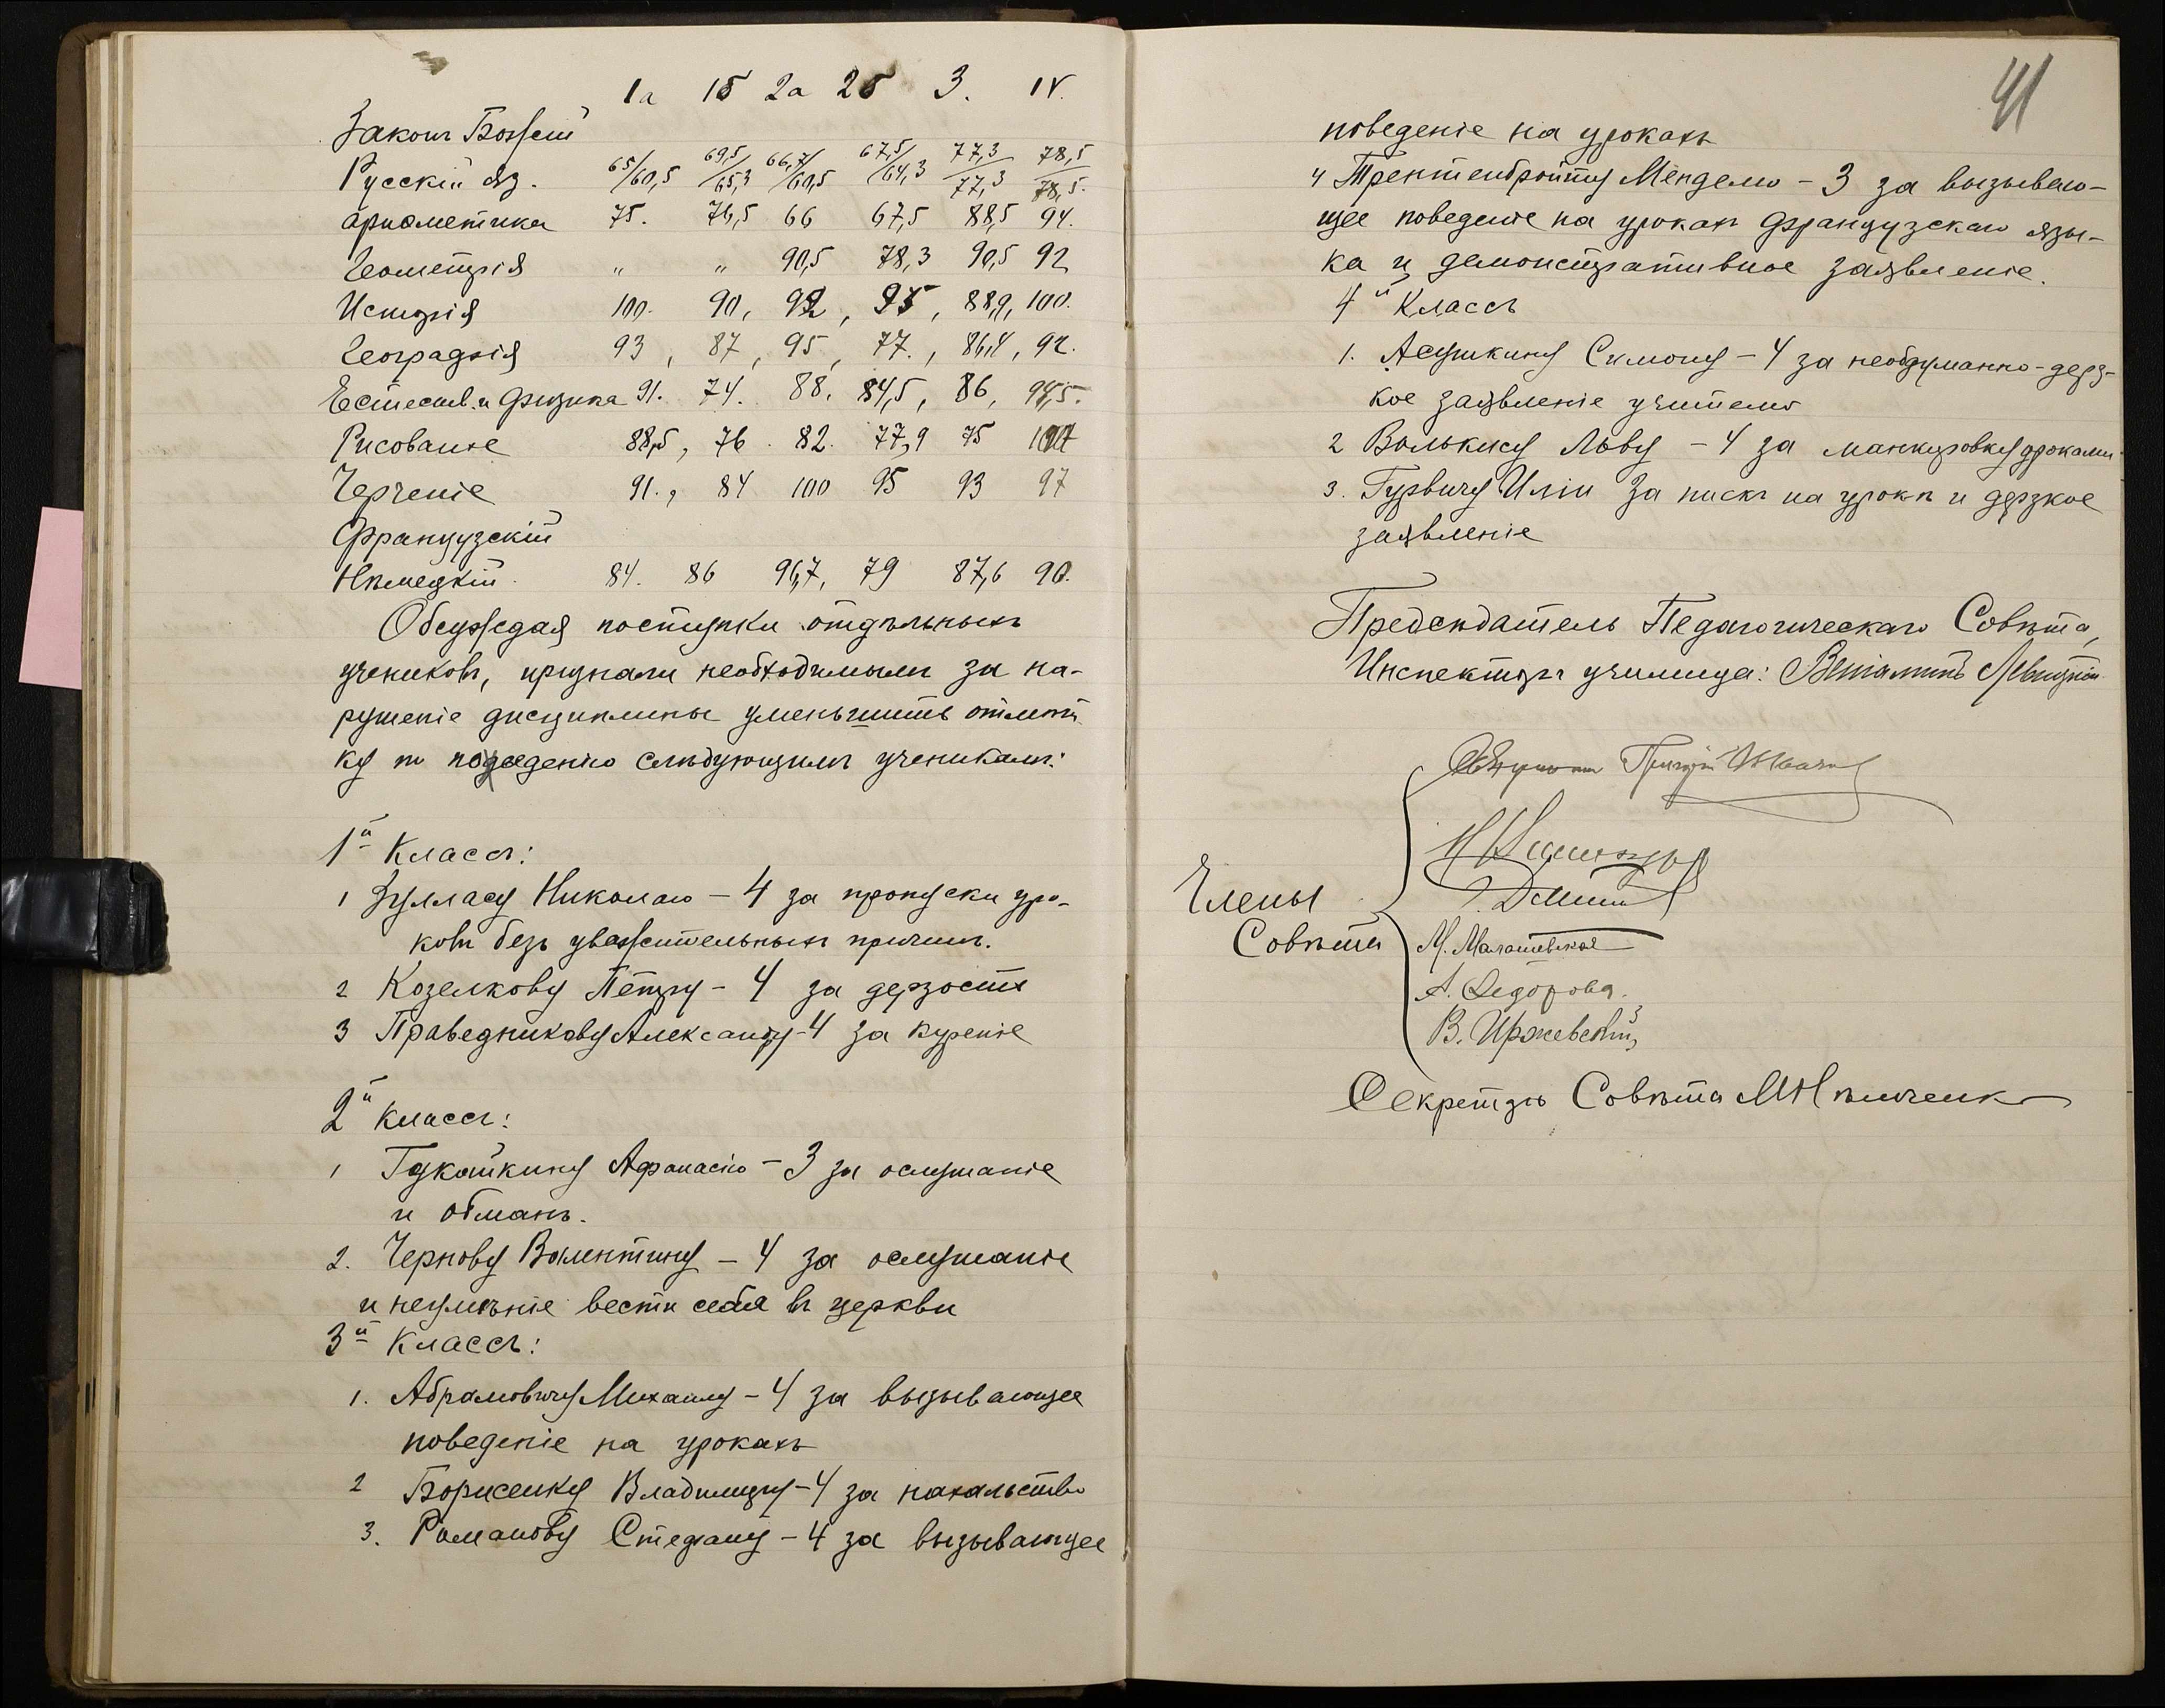 1а 1б 2а 2б 3. IV.
Законъ Божій
Русскій яз. 65/60,5 69,5/65,3 66,7/60,5 67,5/64,3 77,3/77,3 78,5/78,5.
Ариѳметика 75. 76,5 66 67,5 88,5 94.
Геометрія " " 90,5 78,3 90,5 92
Исторія 100. 90, 92, 95, 88,9, 100.
Географія 93, 87, 95, 77., 86,4, 92.
Естеств. и физика 91. 74. 88, 84,5, 86, 94,5.
Рисованіе 88,5, 76. 82. 77,9 75 100
Черченіе 91., 84 100 95 93 97
Французскій
Нѣмецкій. 84. 86 96,7, 79 87,6 90.
Обсуждая поступки отдѣльныхъ
учениковъ, признали необходимымъ за на-
рушеніе дисциплины уменьшить отмѣт-
ку по поведенію слѣдующимъ ученикамъ:
1й Классъ:
1 Зулласу Николаю – 4 за пропуски уро-
ковъ безъ уважительныхъ причинъ.
2 Козелкову Петру – 4 за дерзость
3 Праведникову Александру – 4 за куреніе
2й Классъ:
1 Гукайкину Афанасію – 3 за ослушаніе
и обманъ.
2. Чернову Валентину – 4 за ослушаніе
и неумѣніе вести себя въ церкви
3й Классъ:
1. Абрамовичу Михаилу – 4 за вызывающее
поведеніе на урокахъ
2 Борисенку Владимиру – 4 за нахальство
3. Романову Стефану – 4 за вызывающее
41
поведеніе на урокахъ
4 Трентенбройту Менделю – 3 за вызываю-
щее поведеніе на урокахъ французскаго язы-
ка и демонстративное заявленіе.
4й Классъ
1. Асушкину Симону – 4 за необдуманно-дерз-
кое заявленіе учителю
2 Волькису Льву – 4 за манкировку уроками
3. Гурвичу Иліи за пискъ на урокѣ и дерзкое
заявленіе
Предсѣдатель Педагогическаго Совѣта,
Инспекторъ училища: Веніаминъ
Члены
Совѣта
М. Малашевская
А. Федорова.
В. Иржевскій
Секретарь Совѣта